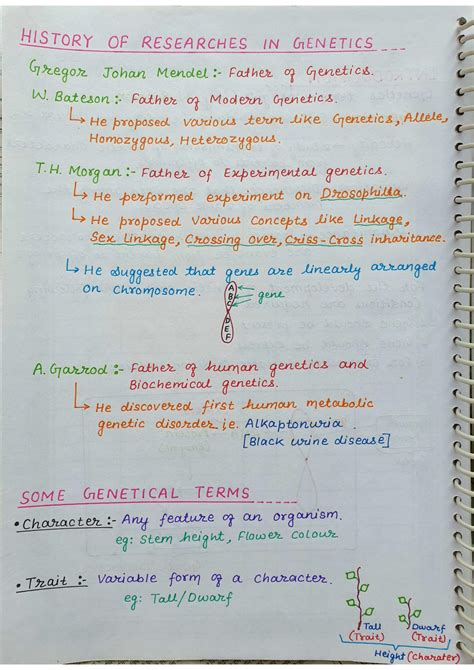 HISTORY OF RESEARCHES IN GENETICS
Gregor Johan Mendel:- Father of Genetics.
W. Bateson:- Father of Modern Genetics.
↳ He proposed various term like Genetics, Allele,
Homozygous, Heterozygous.
T.H. Morgan:- Father of Experimental genetics.
↳ He performed experiment on Drosophilla.
↳ He proposed various concepts like Linkage,
Sex Linkage, Crossing over, Criss-Cross inharitance.
↳ He suggested that genes are linearly arranged
on chromosome.
A
B
C
gene
D
E
F
A. Garrod:- Father of human genetics and
Biochemical genetics.
↳ He discovered first human metabolic
genetic disorder, i.e. Alkaptonuria
[Black urine disease]
SOME GENETICAL TERMS
• Character:- Any feature of an organism.
eg: Stem height, Flower colour
• Trait:- Variable form of a character.
eg: Tall/Dwarf
Tall Dwarf
(Trait) (Trait)
Height (Charater)